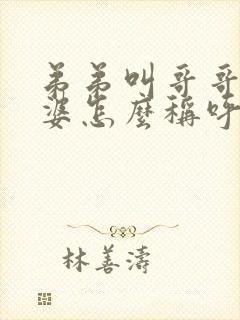 弟弟叫哥哥
婆怎麼稱呼
林善濤